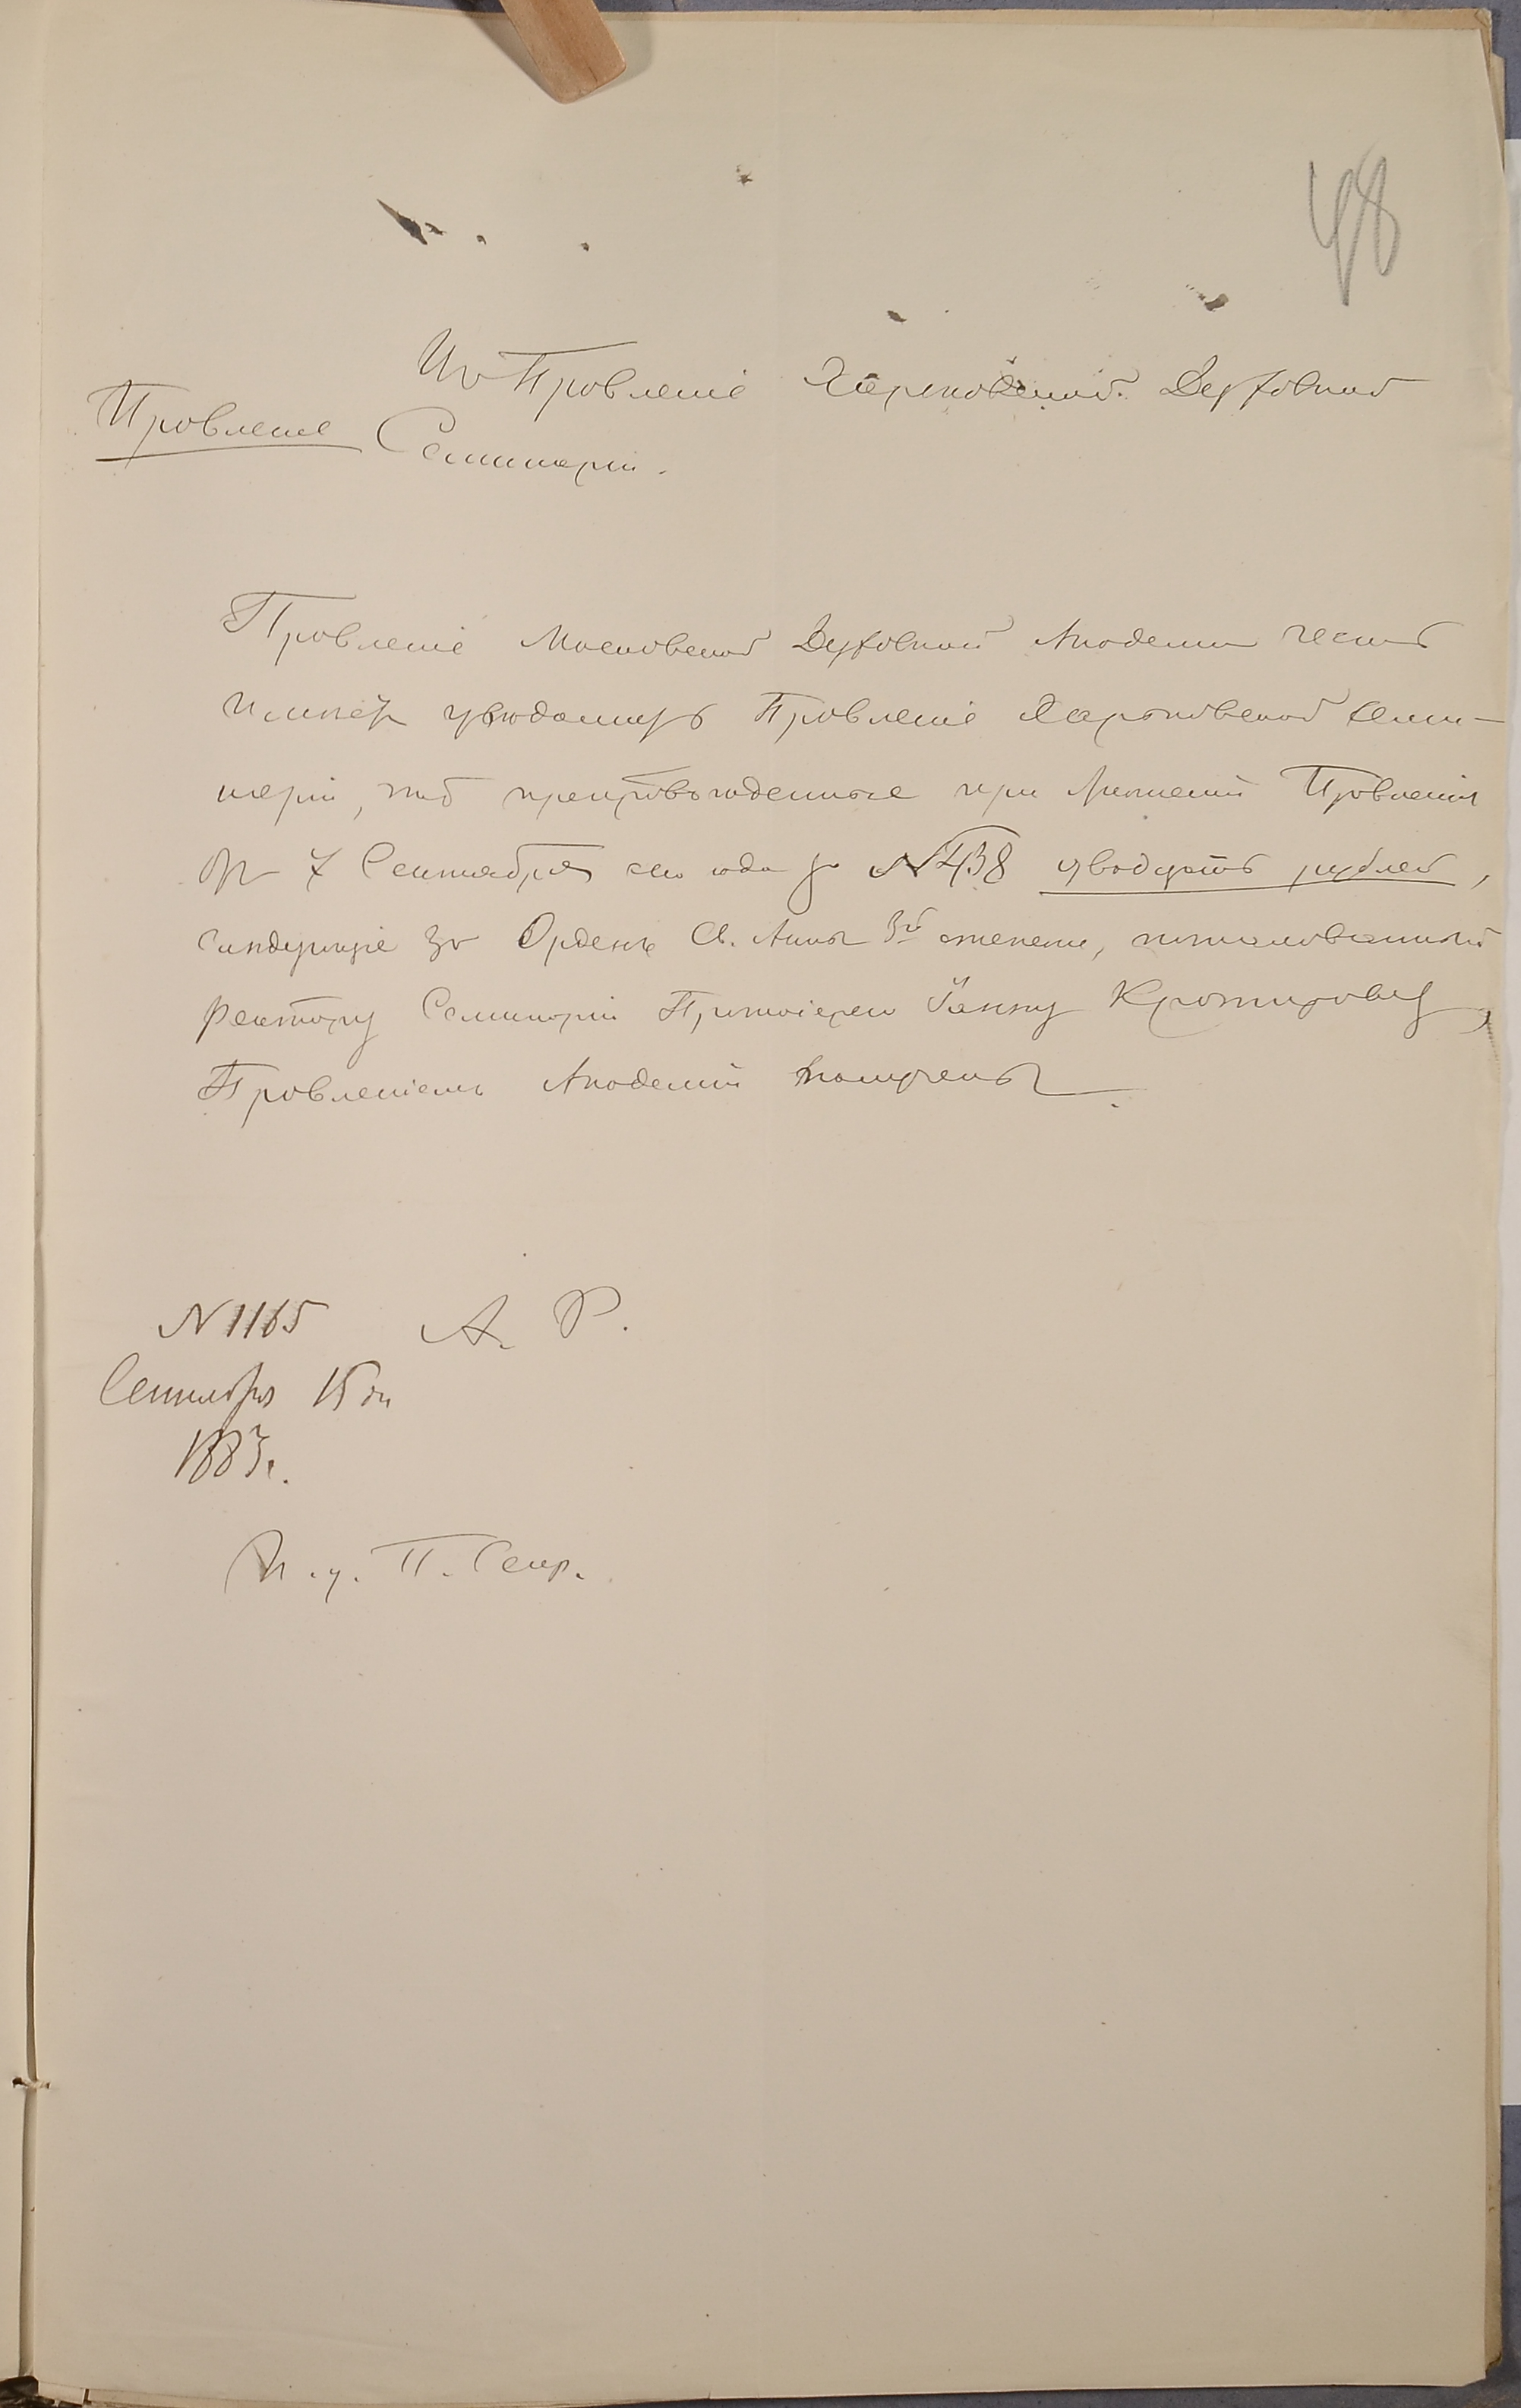 48
Въ Правленіе Харьковской Духовной
Правленіе Семинаріи.
Правленіе Московской Духовной Академіи честь
имѣетъ увѣдомить Правленіе Харьковской Семи-
наріи, что препровожденные при отношеніи Правленія
отъ 7 Сентября сего года за N 438 двадцать рублей,
слѣдующіе за Орденъ Св. Анны 3й степени, пожалованный
Ректору Семинаріи Протоіерею Іоанну Кратирову,
Правленіемъ Академіи получены.
N 1165 А. Р.
Сентября 15 дн
1883 г.
И. д. П. Секр.